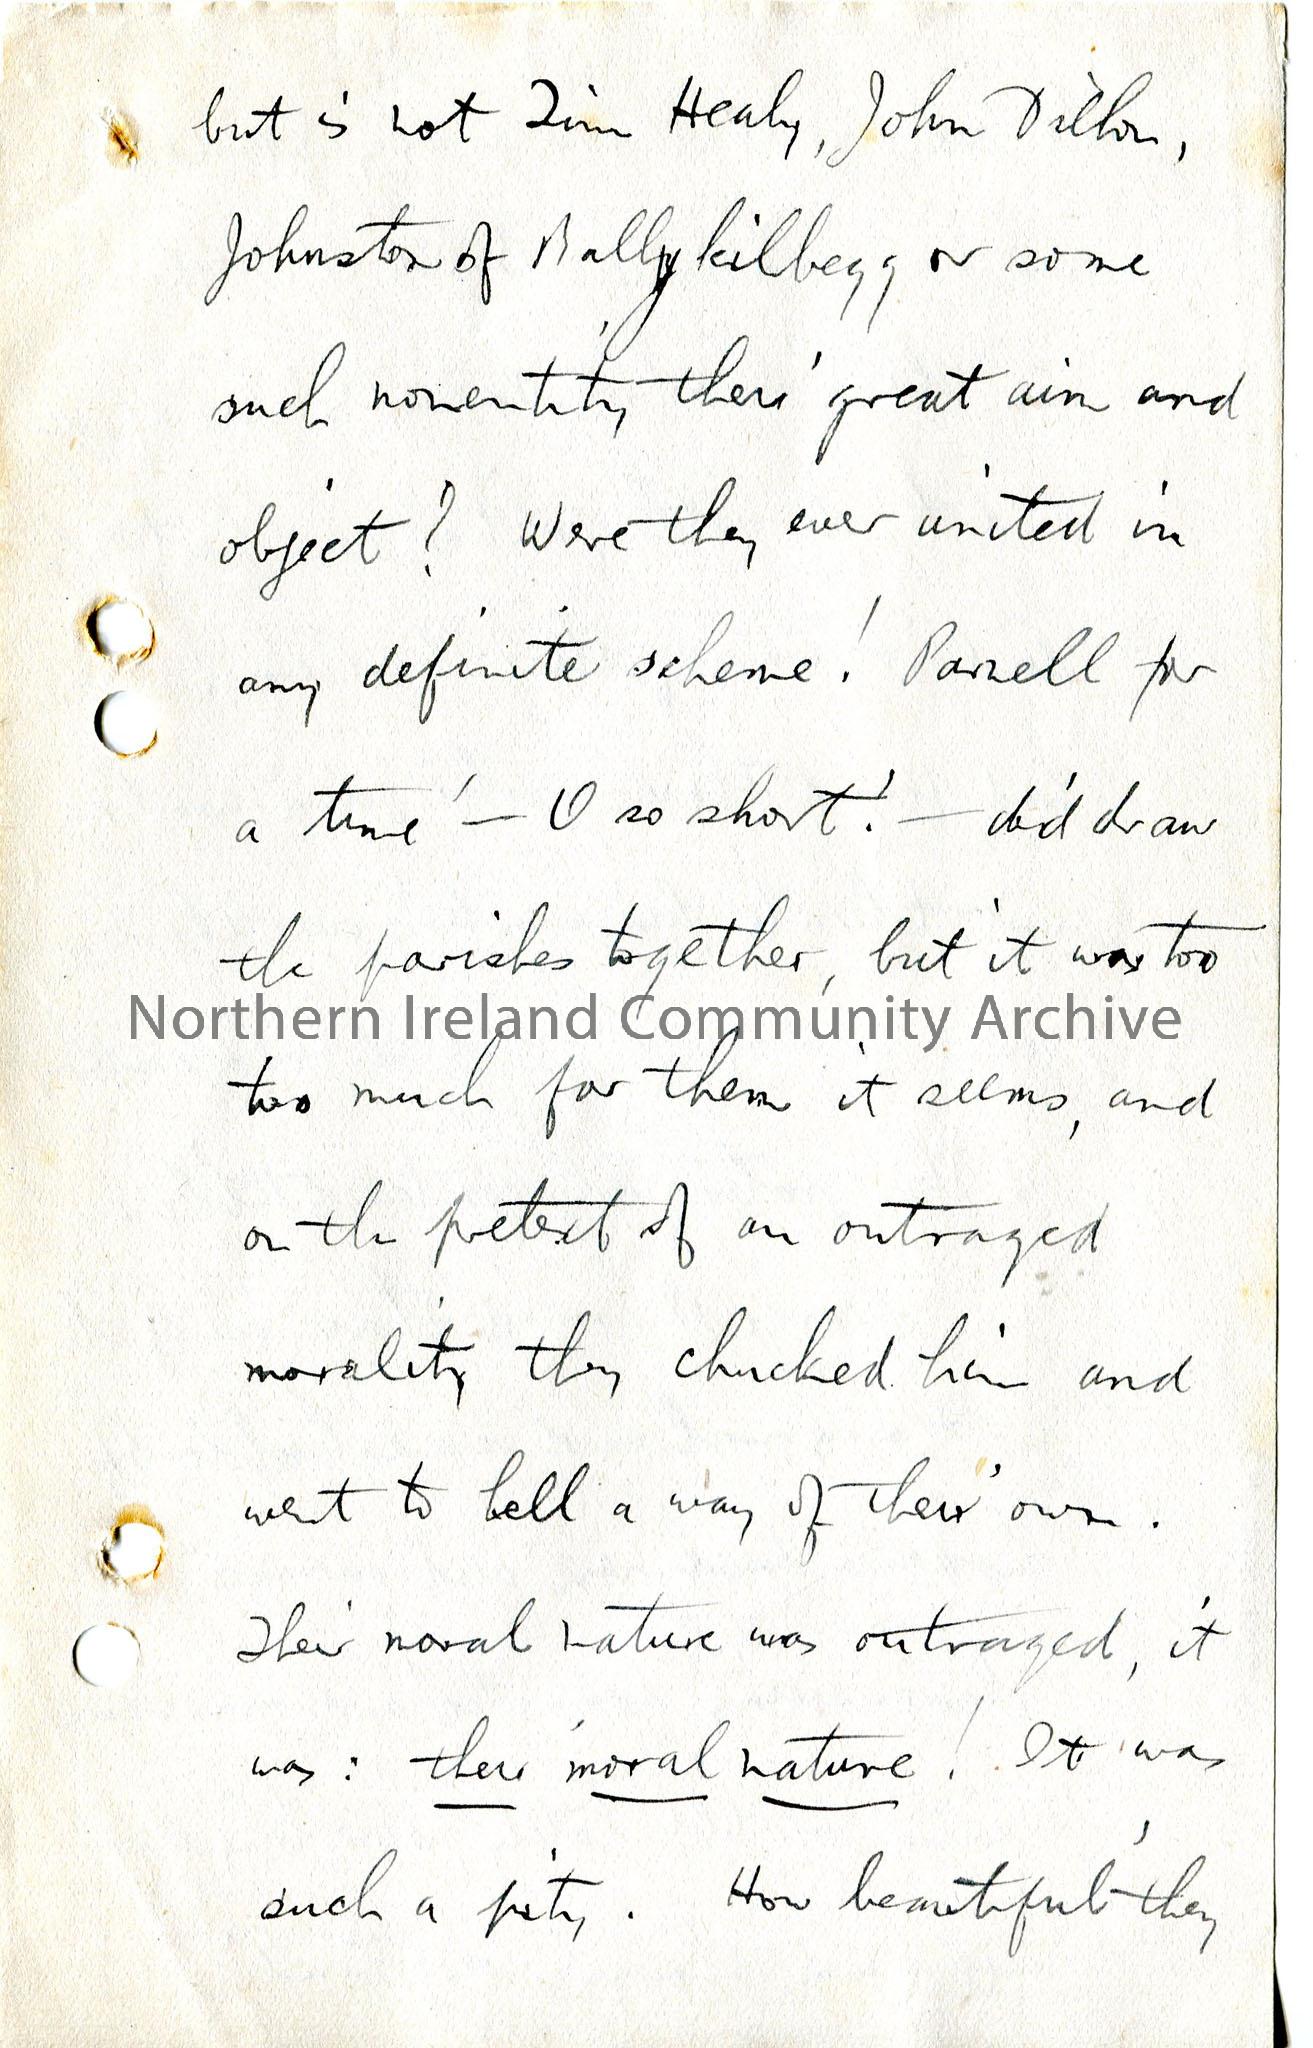 but is not Tim Healy, John Dillon,
Johnston of Ballykilbegg or some
such nonentity their great aim and
object? Were they ever united in
any definite scheme! Parnell for
a time – O so short! – did draw
the parishes together, but it was too
too much for them it seems, and
on the pretext of an outraged
morality they chucked him and
went to hell a way of their own.
Their moral nature was outraged, it
was: their moral nature! It was
such a pity. How beautiful they
Northern Ireland Community Archive